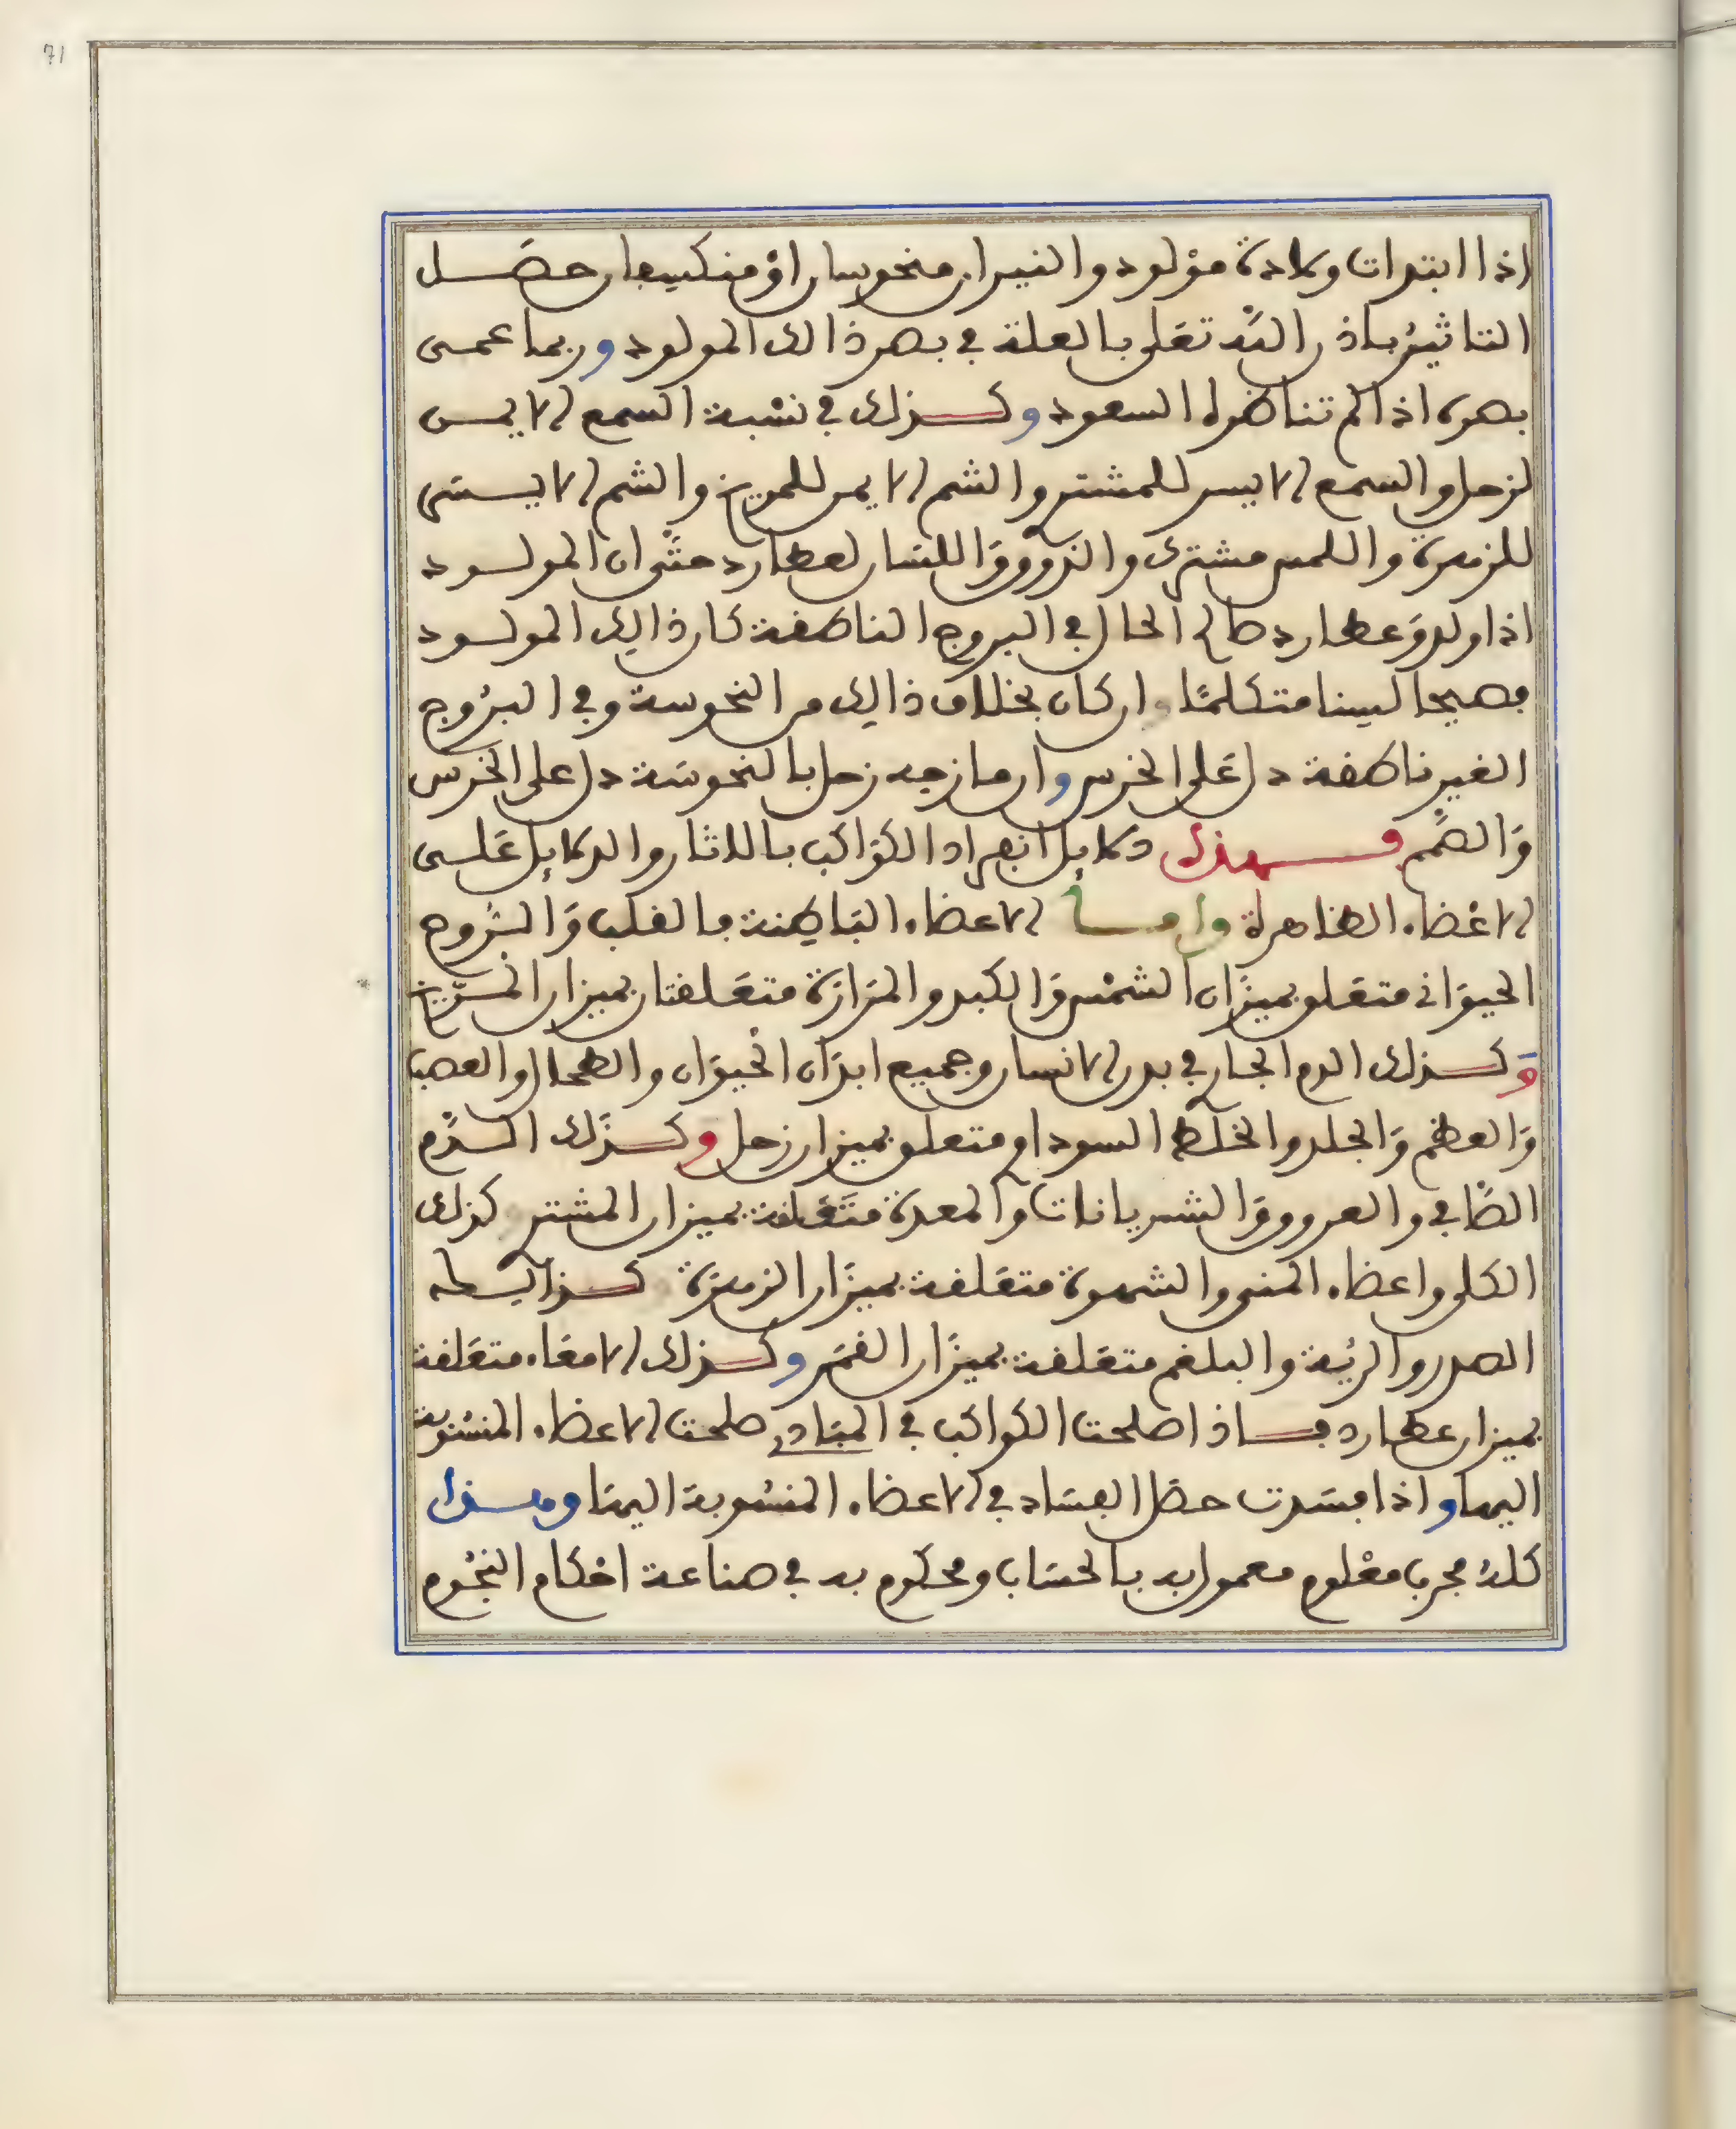 71
اذا ابتدات ولادة مولود والنيران منحوسان او منكسفان حصل
التاثير باذن الله تعلى بالعلة في بصر ذالك المولود وربما عمى
بصره اذا لم تناظره السعود وكذلك في نسبة السمع الايمن
لزحل والسمع الايسر للمشتري والشم الايمن للمريخ والشم الايسر
للزهرة واللمس مشترك والذوق واللسان لعطارد حتى ان المولود
اذا ولد وعطارد صالح الحال في البروج الناطقة كان ذالك المولود
فصيحا لسنا متكلما وان كان بخلاف ذالك من النحوسة وفي البروج
الغير ناطقة دل على الخرس وان مازجه زحل بالنحوسة دل على الخرس
والصمم فهذه دلايل انفراد الكواكب بالاثار والدلايل على
الاعضاء الظاهرة واما الاعضاء الباطنة فالقلب والروح
الحيواني متعلق بميزان الشمس والكبد والمرارة متعلقتان بميزان المريخ
وكذلك الدم الجار في بدن الانسان وجميع ابدان الحيوان والطحال والعصب
والعظم والجلد والخلط السوداوي متعلق بميزان زحل وكذلك الدم
الصافي والعروق والشريانات والمعدة متعلقة بميزان المشتري كذلك
الكلى واعضاء المنى والشهوة متعلقة بميزان الزهرة كذالك
الصدر والرئة والبلغم متعلقة بميزان القمر وكذلك الامعاء متعلقة
بميزان عطارد فاذا صلحت الكواكب في المبادي صلحت الاعضاء المنسوبة
اليها واذا فسدت حصل الفساد في الاعضاء المنسوبة اليها وهذا
كله مجرب معلوم معمول به بالحساب ومحكوم به في صناعة احكام النجوم